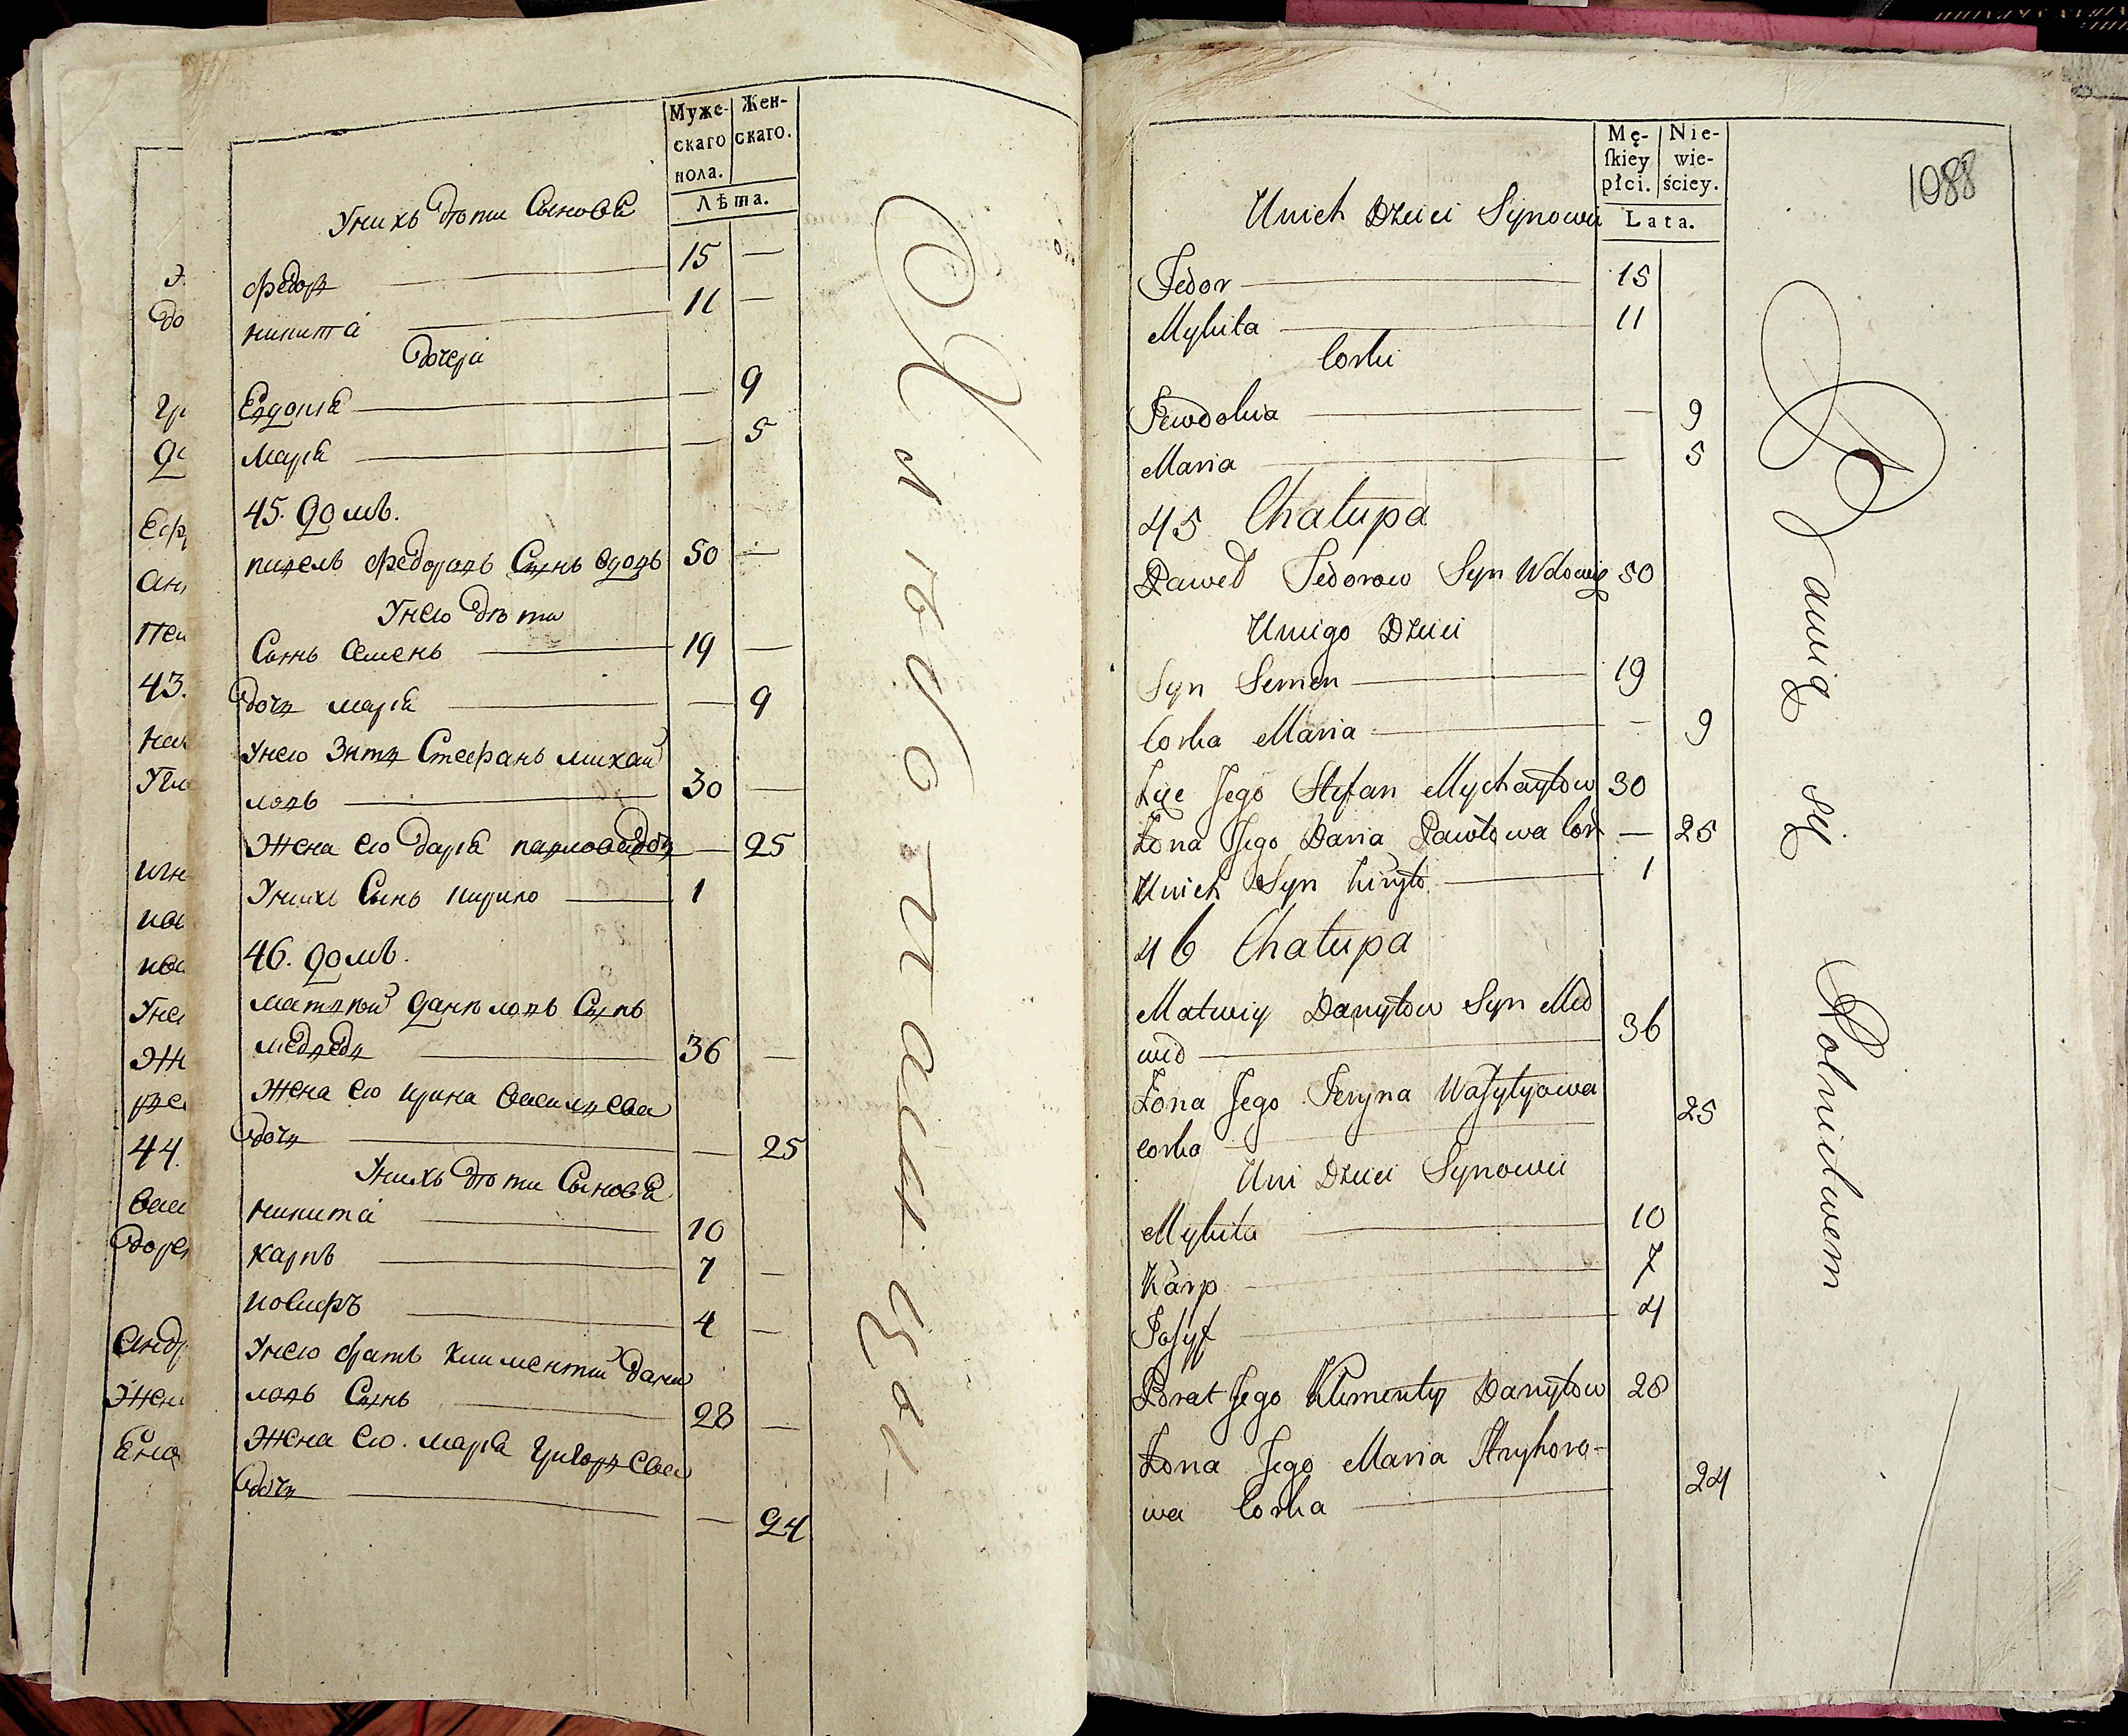 Муже-
скаго
пола.
Жен-
скаго.
Лѣта.
Унихъ дѣти Сыновя
Федоръ 15 —
никита 11 —
дочери
Евдокія — 9
Марія — 5
45. домъ.
павелъ Федоровъ Сынъ вдовъ 50 —
Унего дѣти
Сынъ Семенъ 19 —
дочъ марія — 9
Унего Зять Стефанъ михай
ловъ 30 —
Жена его дарія павловадочъ — 25
Унихъ Сынъ кирило 1
46. домъ.
матвѣй даниловъ Сынъ
медведь 36 —
Жена его ирина васильева
дочъ — 25
Унихъ дѣти Сыновя
никита 10
карпъ 7 —
иосифъ 4 —
Унего братъ климентій дани
ловъ Сынъ 28 —
Жена его. марія григорьева
дочъ — 24
43.
44.
Mę-
ſkiey
płci.
Nie-
wie-
ściey.
Lata.
1088
Unich Dzieci Synowie
Fedor 15
Mykita 11
Corki
Jewdokia — 9
Maria 5
45 Chałupa
Paweł Fedorow Syn Wdowiec 50
Uniego Dzieci
Syn Semen 19
Corka Maria — 9
Zięc Jego Stefan Mychayłow 30
Żona Jego Daria Pawłowa Cor — 25
Unich Syn Kiryło 1
46 Chałupa
Matwiy Danyłow Syn Med
wid 36
Żona Jego Jeryna Waſylyowa
corka 25
Uni Dzieci Synowie
Mykita 10
Karp 7
Joſyf 4
Brat Jego Klimenty Danyłow 28
Żona Jego Maria Hryhoro-
wa Corka 24
Bawią się Rolnictwem